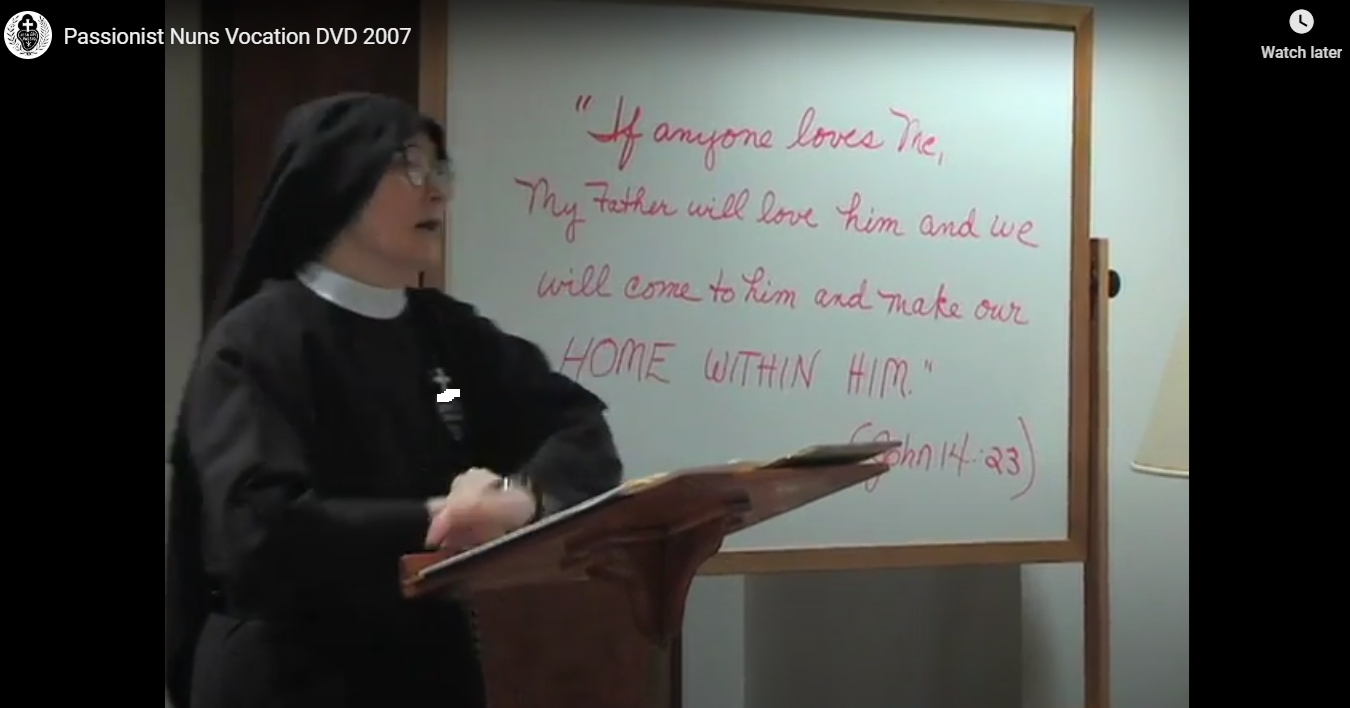 Passionist Nuns Vocation DVD 2007
Watch later
"If anyone loves Me,
My Father will love him and we
will come to him and make our
HOME WITHIN HIM."
(John 14:23)